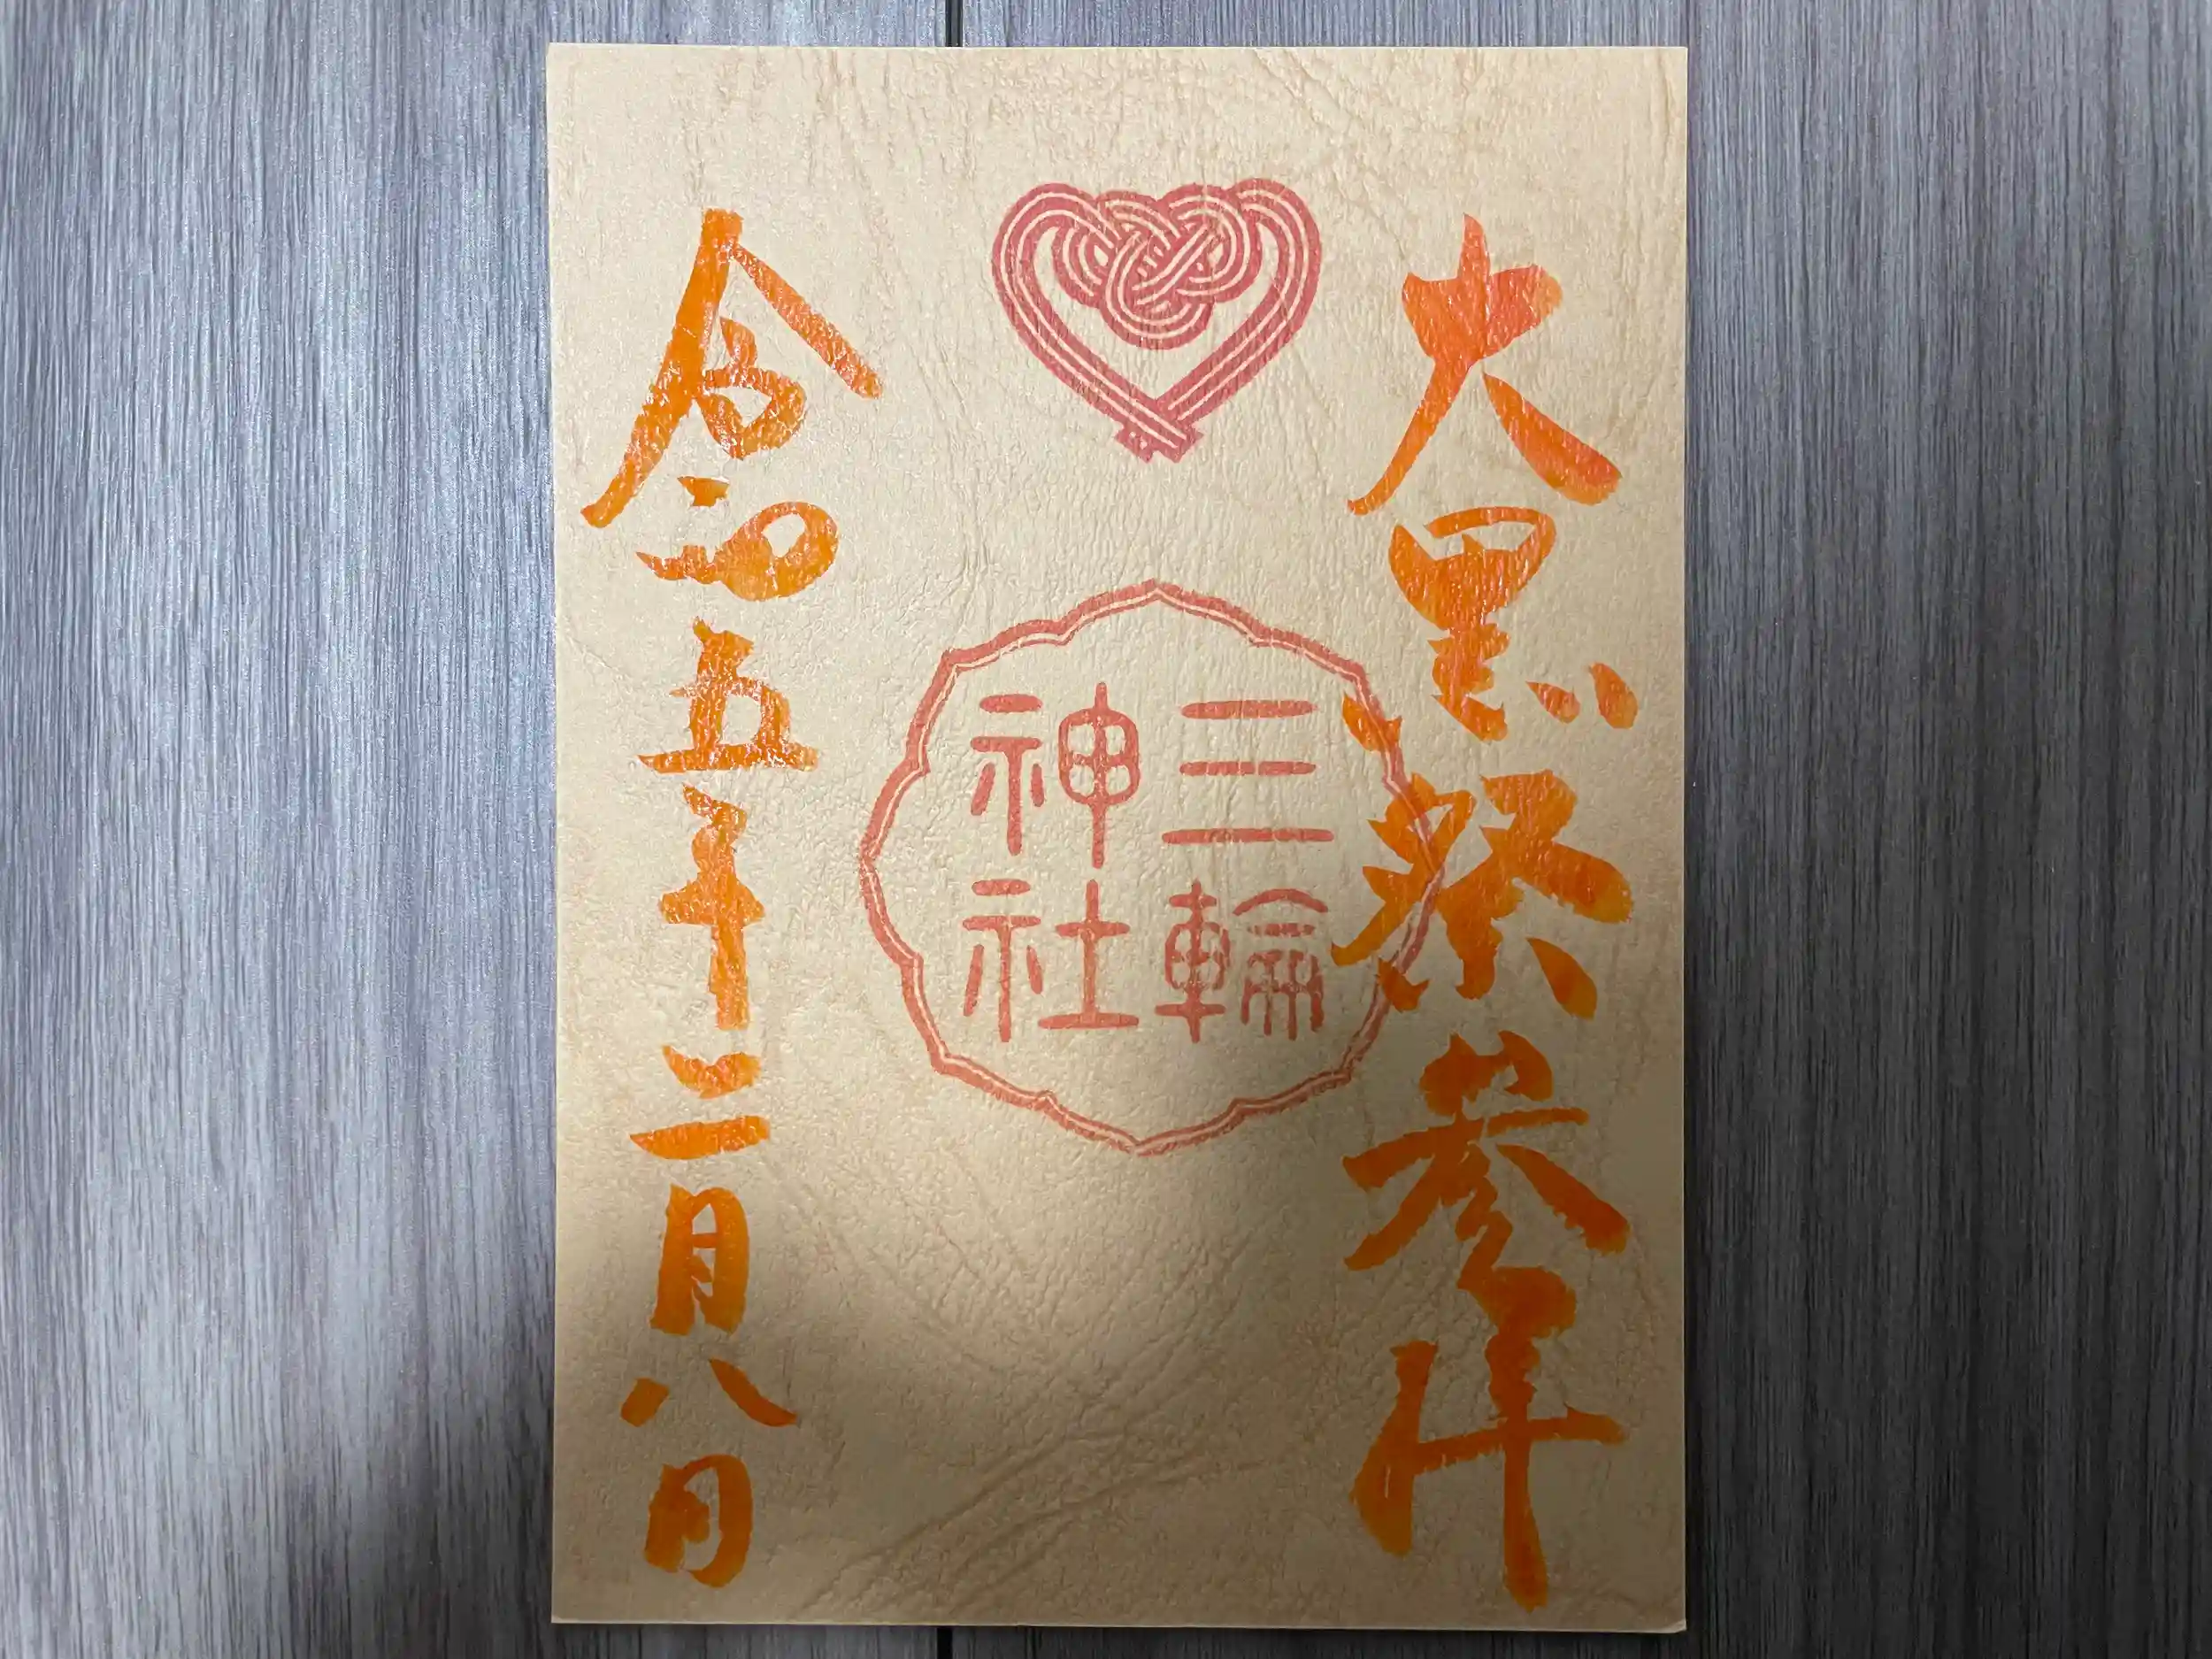 大黒祭参拝
三輪
神社
令和五年十二月八日